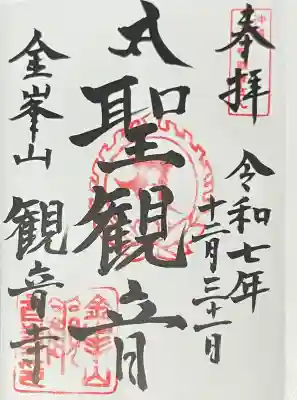 奉拝
令和七年
十二月三十一日
聖観音
金峯山
観音寺